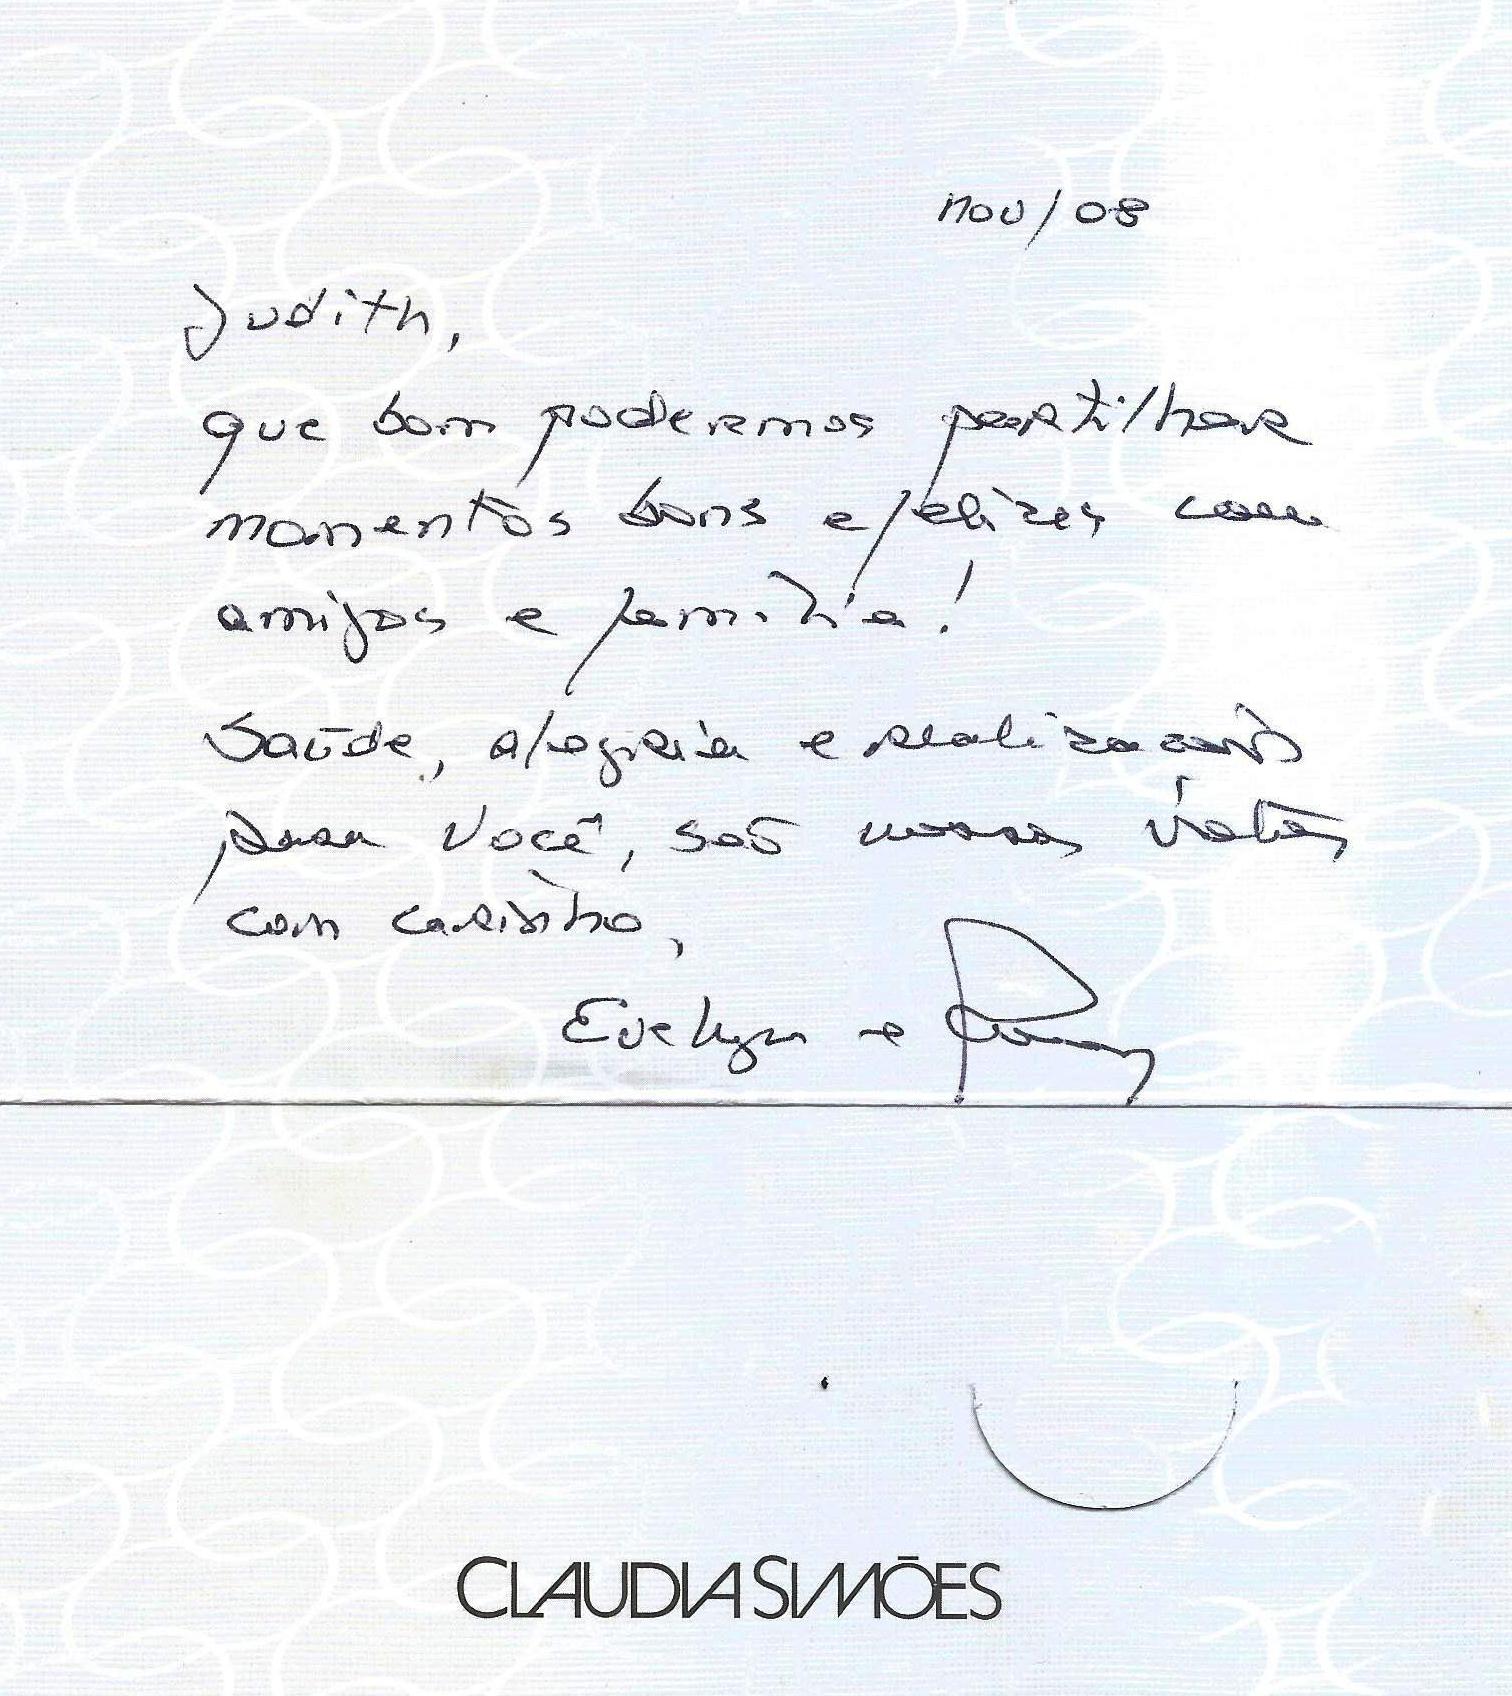 nov/08
Judith,
que bom podermos partilhar
momentos bons e felizes com
amigos e família!
Saúde, alegria e realizações
para você, são nossos votos,
com carinho,
Evelyn e
CLAUDIA SIMÕES